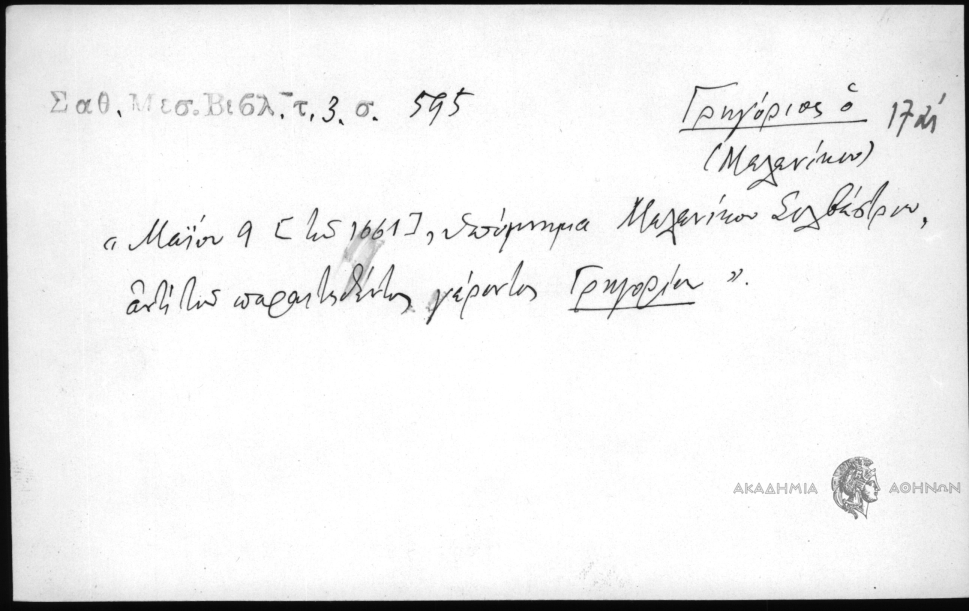 Σαθ. Μεσ. Βιβλ. τ. 3. σ. 595
Γρηγόριος ὁ 17 αἰ
(Μελενίκου)
« Μαΐου 9 [τοῦ 1661], ὑπόμνημα Μελενίκου Σιλβέστρου,
ἀντὶ τοῦ παραιτηθέντος γέροντος Γρηγορίου ».
ΑΚΑΔΗΜΙΑ ΑΘΗΝΩΝ